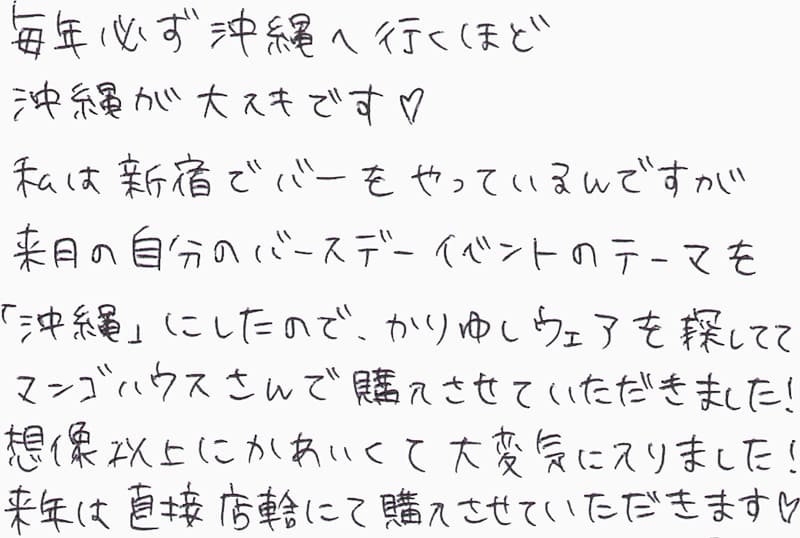 毎年必ず沖縄へ行くほど
沖縄が大スキです♡
私は新宿でバーをやっているんですが
来月の自分のバースデーイベントのテーマを
「沖縄」にしたので、かりゆしウェアを探してて
マンゴハウスさんで購入させていただきました!
想像以上にかわいくて大変気に入りました!
来年は直接店舗にて購入させていただきます♡